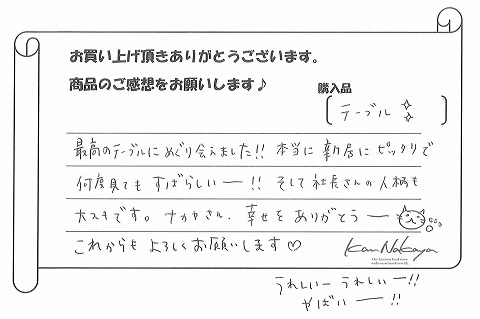 お買い上げ頂きありがとうございます。
商品のご感想をお願いします♪
購入品
テーブル
最高のテーブルにめぐり会えました!! 本当に新居にピッタリで
何度見ても すばらしいー!! そして社長さんの人柄も
大スキです。ナカヤさん、幸せをありがとうー
これからも よろしくお願いします♡
KanNakaya
うれしいー うれしいー!!
やばいー!!